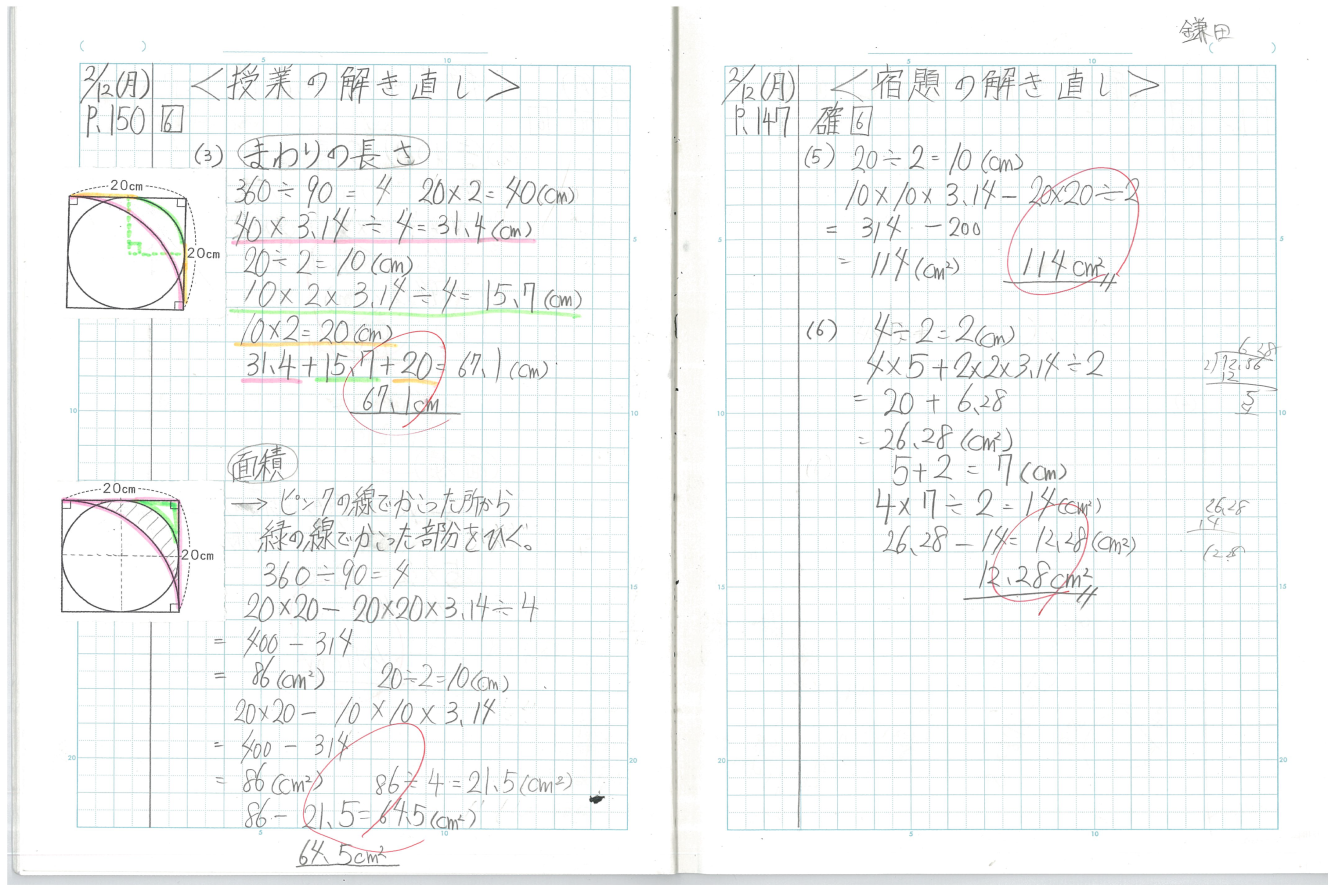 2/12(月) <授業の解き直し>
P.150 6
(3) まわりの長さ
20cm
20cm
360÷90=4 20×2=40(cm)
40×3.14÷4=31.4(cm)
20÷2=10(cm)
10×2×3.14÷4=15.7(cm)
10×2=20(cm)
31.4+15.7+20=67.1(cm)
67.1cm
面積
20cm
20cm
→ピンクの線でかこった所から
緑の線でかこった部分をひく。
360÷90=4
20×20-20×20×3.14÷4
=400-314
=86(cm²) 20÷2=10(cm)
20×20-10×10×3.14
=400-314
=86(cm²) 86÷4=21.5(cm²)
86-21.5=64.5(cm²)
64.5cm²
鎌田
2/12(月) <宿題の解き直し>
P.147 確6
(5) 20÷2=10(cm)
10×10×3.14-20×20÷2
=314-200
=114(cm²) 114cm²
(6) 4÷2=2(cm)
4×5+2×2×3.14÷2
=20+6.28
=26.28(cm²)
5+2=7(cm)
4×7÷2=14(cm²)
26.28-14=12.28(cm²)
12.28cm²
6.28
26.28
14